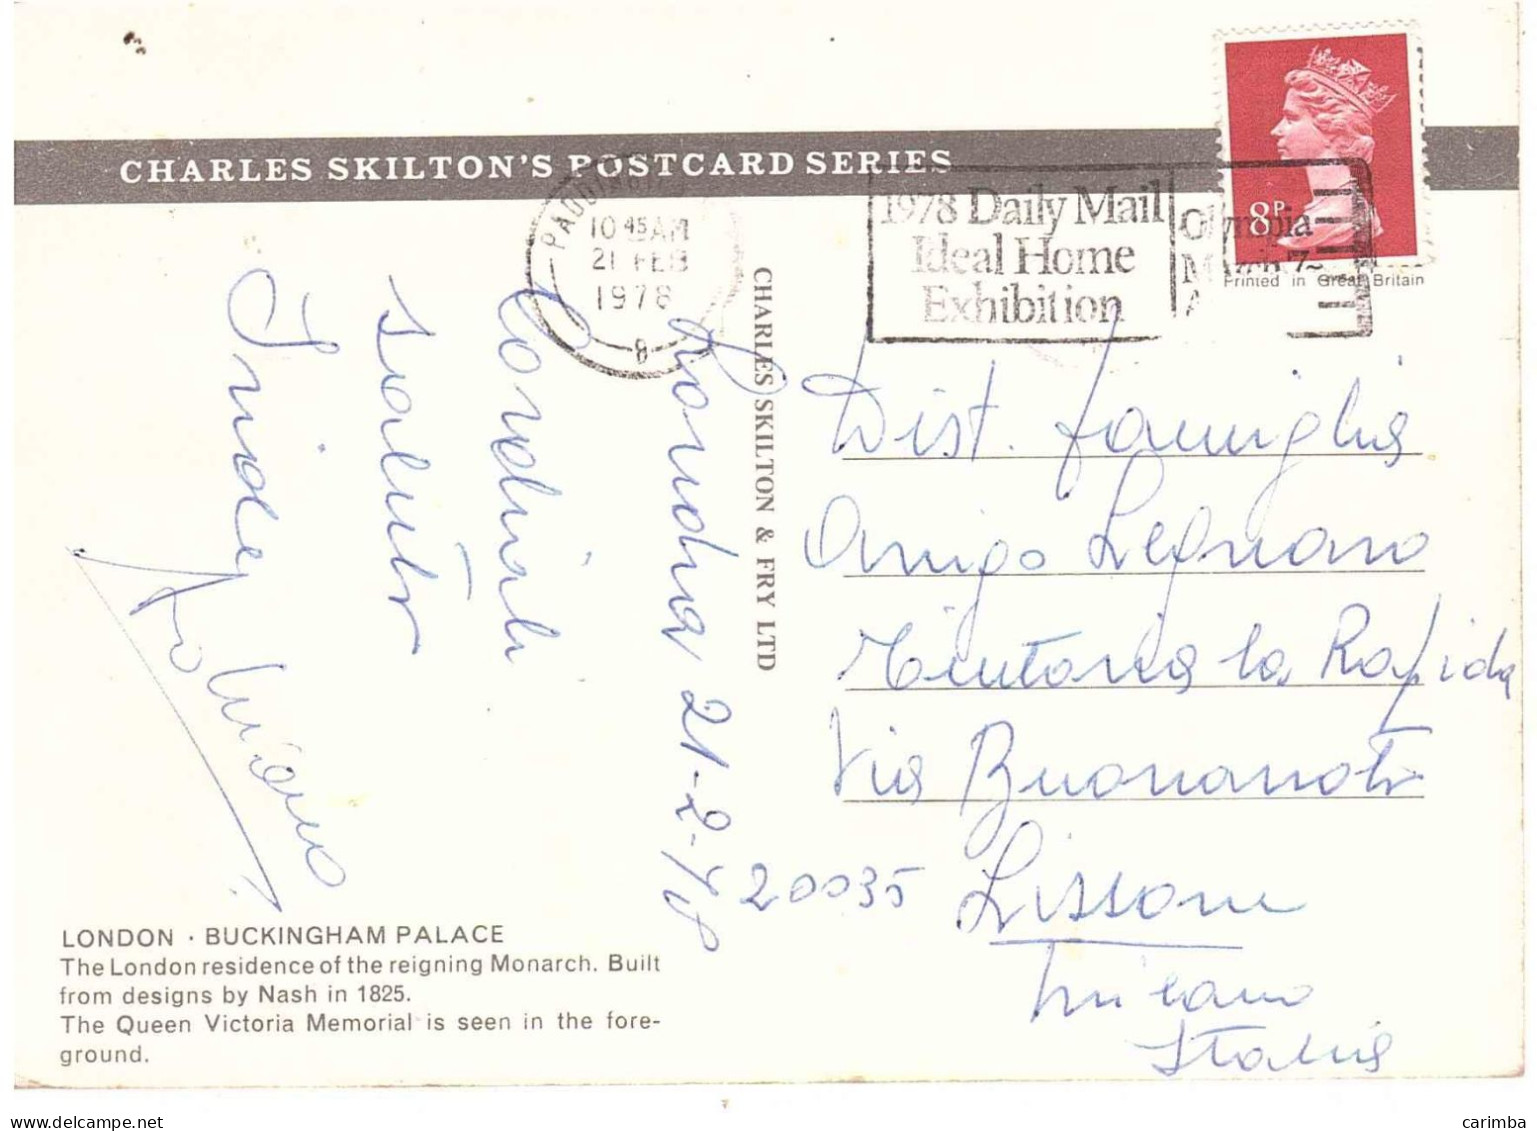 CHARLES SKILTON'S POSTCARD SERIES
PADDINGTON
10 45 AM
21 FEB
1978
8
1978 Daily Mail
Ideal Home
Exhibition
Olympia
8P
Printed in Great Britain
CHARLES SKILTON & FRY LTD
Londra 21-2-78
Cordiali
saluti
Dist. famiglia
Amigo Legnaro
Tintoria la Rapida
Via Buonarroti
20035 Lissone
Milano
Italia
LONDON · BUCKINGHAM PALACE
The London residence of the reigning Monarch. Built
from designs by Nash in 1825.
The Queen Victoria Memorial is seen in the fore-
ground.
www.delcampe.net
carimba